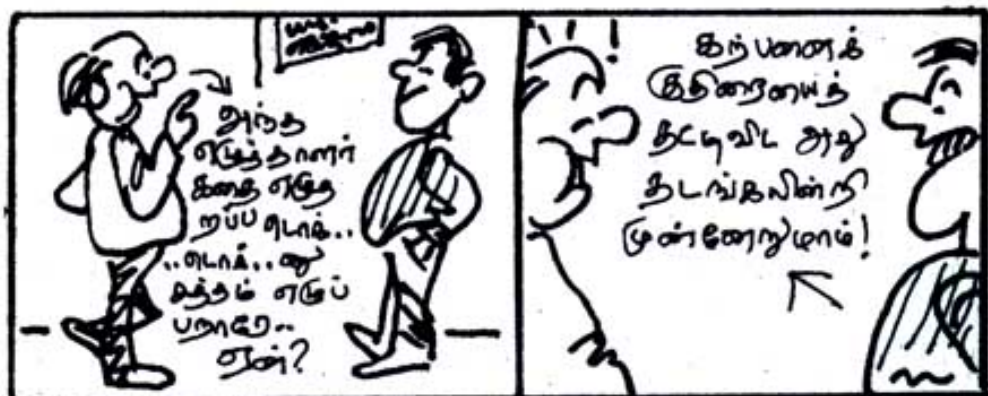 அந்த
எழுத்தாளர்
கதை எழுத
றப்ப டொக்..
..டொக்..னு
சத்தம் எழுப்
பறாரே..
ஏன்?
கற்பனைக்
குதிரையைத்
தட்டிவிட அது
தடங்கலின்றி
முன்னேறுமாம்!